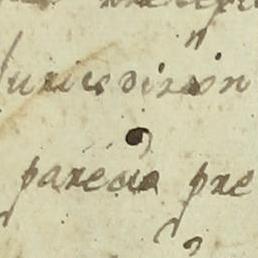 Jurisdizion
parecia pre